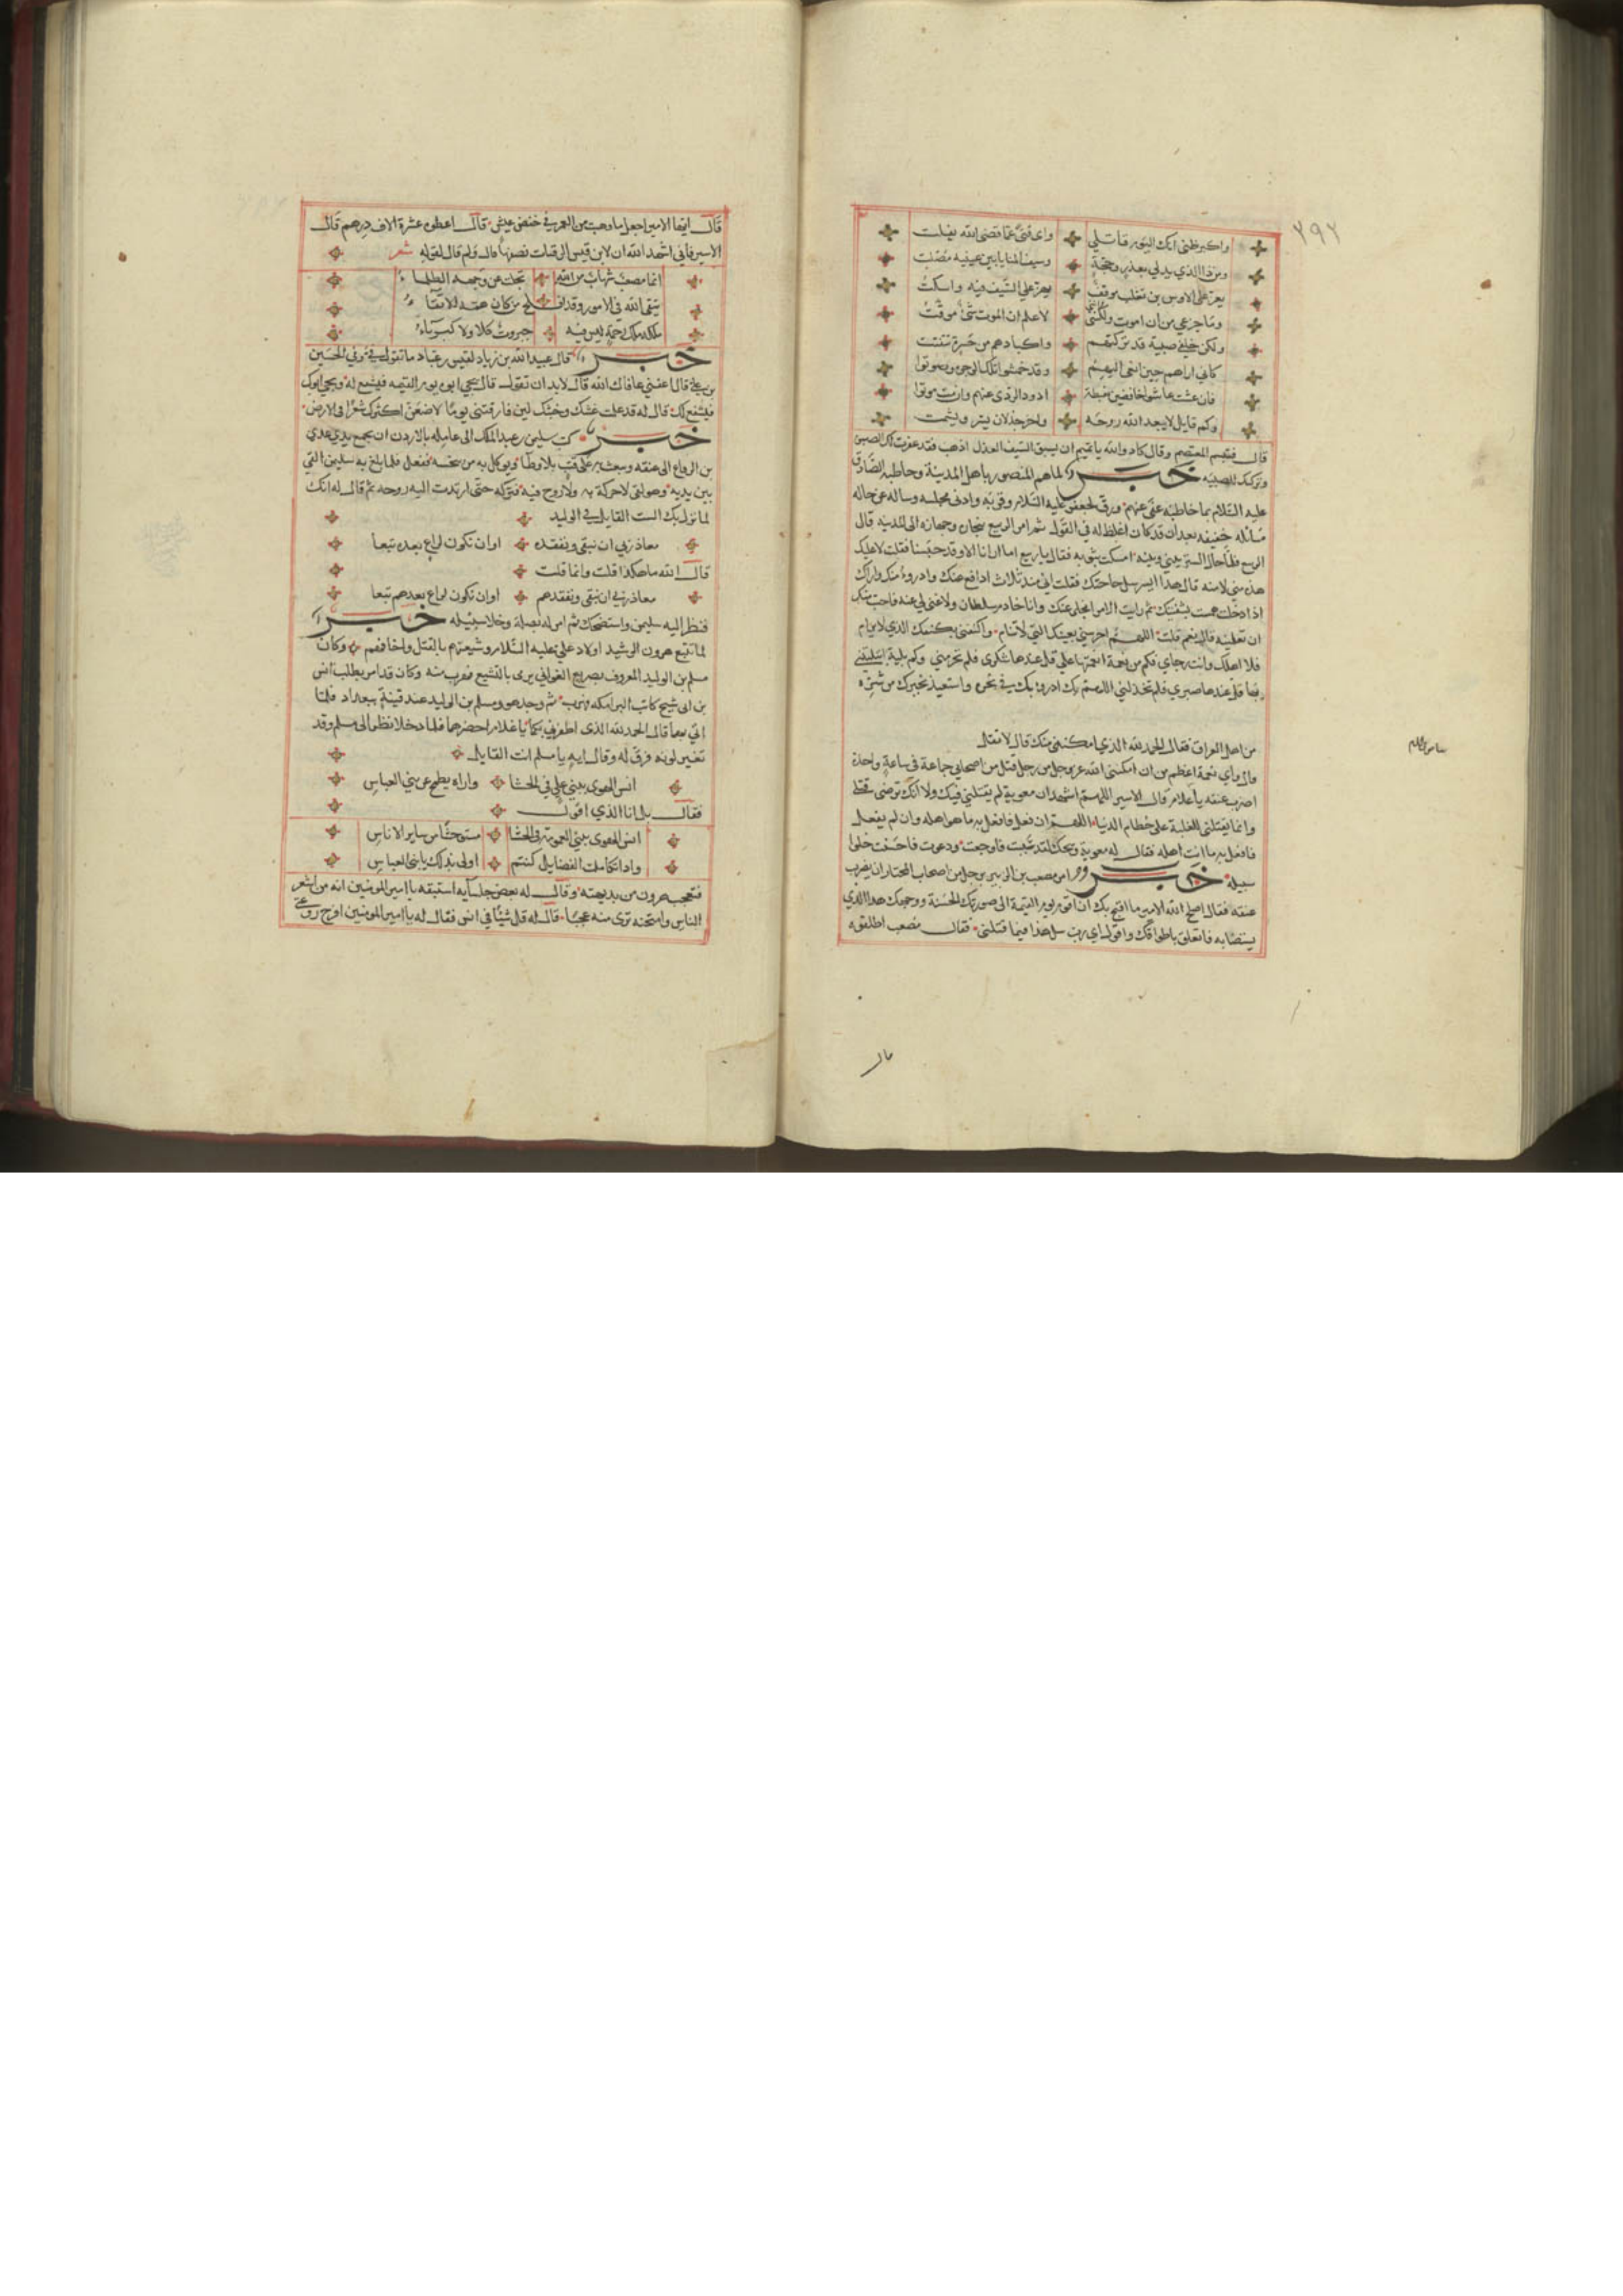 ٢٩٢
واكبر ظني انك اليوم قاتلي واي فتى مما قضى الله يفلت
ومن ذا الذي يدلي بعذر وحجة وسيف المنايا بين عينيه مصلت
يعز على الاوس بن تغلب موقف يعز علي السيف فيه واسكت
وما جزعي من ان اموت ولكنني لاعلم ان الموت شئ موقت
ولكن خلفي صبية قد تركتهم واكبادهم من حسرة تتفتت
كاني اراهم حين انعى اليهم وقد خمشوا تلك الوجوه وصوتوا
فان عشت عاشوا خافضين بغبطة اذود الردى عنهم وان مت موتوا
وكم قايل لا يبعد الله روحه واخر جذلان يسر ويشمت
قال فتبسم المعتصم وقال كاد والله يا تميم ان يسبق السيف العذل اذهب فقد غفرت لك الصبوة
وتركتك للصبية خبر ولما هم المنصور باهل المدينة وخاطبه الصادق
عليه السلام بما خاطبه عفى عنهم ورق لجعفر عليه السلام وقربه وادنى مجلسه وساله عن حاله
مسائلة خفيفة بعد ان قد كان اغلظ له في القول ثم امر الربيع بجهازه الى المدينة قال
الربيع فلما حال الستر بيني وبينه امسكت بثوبه فقال يا ربيع اما ان انا الا وقد حبسنا فقلت لا عليك
هذه مني لا منه قال هذا ايسر سل حاجتك فقلت اني منذ ثلاث ادافع عنك وادروء منك واراك
اذا دخلت همست بشفتيك ثم رايت الامر انجلى عنك وانا خادم سلطان ولا غنى لي عنه فاحب منك
ان تعلمنيه قال نعم قلت اللهم احرسني بعينك التي لا تنام واكنفني بكنفك الذي لا يرام
فلا اهلك وانت رجاي فكم من نعمة انعمتها علي قل عندها شكري فلم تحرمني وكم بلية ابتليتني
بها قل عندها صبري فلم تخذلني اللهم بك ادروء بك في نحره واستعيذ بخيرك من شره
من اهل العراق فقال الحمد لله الذي امكنني منك قال لا تقل
قال واي نعمة اعظم من ان امكنني الله عز وجل من رجل قتل من اصحابي جماعة في ساعة واحدة
اضرب عنقه يا غلام قال الاسير اللهم اشهد ان معوية لم يقتلني فيك ولا انك ترضى قتلي
وانما يقتلني للغلبة على حطام الدنيا اللهم ان فعل فافعل به ما هو اهله وان لم يفعل
فافعل به ما انت اهله فقال له معوية ويحك لقد سببت فاوجعت ودعوت فاحسنت خلوا
سبيله خبر وامر مصعب بن الزبير برجل من اصحاب المختار ان يضرب
عنقه فقال اصلح الله الامير ما اقبح بك ان اقوم يوم القيمة الى صورتك الحسنة ووجهك هذا الذي
يستضا به فاتعلق باطواقك واقول اي رب سل هذا فيما قتلني فقال مصعب اطلقوه
قال
قال ايها الامير اجعل ما وهبت من العمر في خفض عيش قال اعطوه عشرة الاف درهم قال
الاسير فاني اشهد الله ان لابن قيس الرقيات نصفها قال ولم قال لقوله شعر
انما مصعب شهاب من الله تجلت عن وجهه الظلماء
يتقي الله في الامور وقد افلح من كان همه الاتقاء
ملكه ملك رحمة ليس فيه جبروت كلا ولا كبرياء
خبر قال عبيد الله بن زياد لقيس بن عباد ما تقول في وفي الحسين
بن علي قال اعفني عافاك الله قال لا بد ان تقول قال يجي ابوه يوم القيمة فيشفع له ويجي ابوك
فيشفع لك قال له قد علمت غشك وخبثك لين فارقتني يوما لاضعن اكثرك شعرا في الارض
خبر كتب سليمن بن عبد الملك الى عامله بالاردن ان يجمع يدي عدي
بن الرقاع الى عنقه ويبعث به على قتب بلا وطا ويوكل به من ينخسه ففعل فلما بلغ به سليمن القي
بين يديه وهو لقى لا حركة به ولا روح فيه فتركه حتى ارتدت اليه روحه ثم قال له انك
لما نزل بك الست القايل في الوليد
معاذ ربي ان نبقى ونفقده اوان نكون لراع بعده تبعا
قال الله ما هكذا قلت وانما قلت
معاذ ربي ان نبقى ونفقدهم اوان نكون لراع بعدهم تبعا
فنظر اليه سليمن واستضحك ثم امر له بصلة وخلا سبيله خبر
لما تتبع هرون الرشيد اولاد علي عليه السلام وشيعتهم بالقتل واخافهم وكان
مسلم بن الوليد المعروف بصريع الغواني يرمى بالتشيع فهرب منه وكان قد امر بطلب انس
بن ابي شيخ كاتب البرامكه فهرب ثم وجد هو ومسلم بن الوليد عند قينة ببغداد فلما
اتي بهما قال الحمد لله الذي اظفرني بكما يا غلام احضرهما فلما دخلا نظر الى مسلم وقد
تغير لونه فرق له وقال ايه يا مسلم انت القايل
انس الهوى ببني علي في الحشا واراه يطمح عن بني العباس
فقال بل انا الذي اقول
انس الهوى ببني العمومة في الحشا مستوحشا من ساير الاناس
واذا تكاملت الفضايل كنتم اولى بذلك يا بني العباس
فتعجب هرون من بديهته وقال له بعض جلسآيه استبقه يا امير المومنين انه من اشعر
الناس وامتحنه ترى منه عجبا قال له قل شيئا في انس فقال له يا امير المومنين افرخ روعي